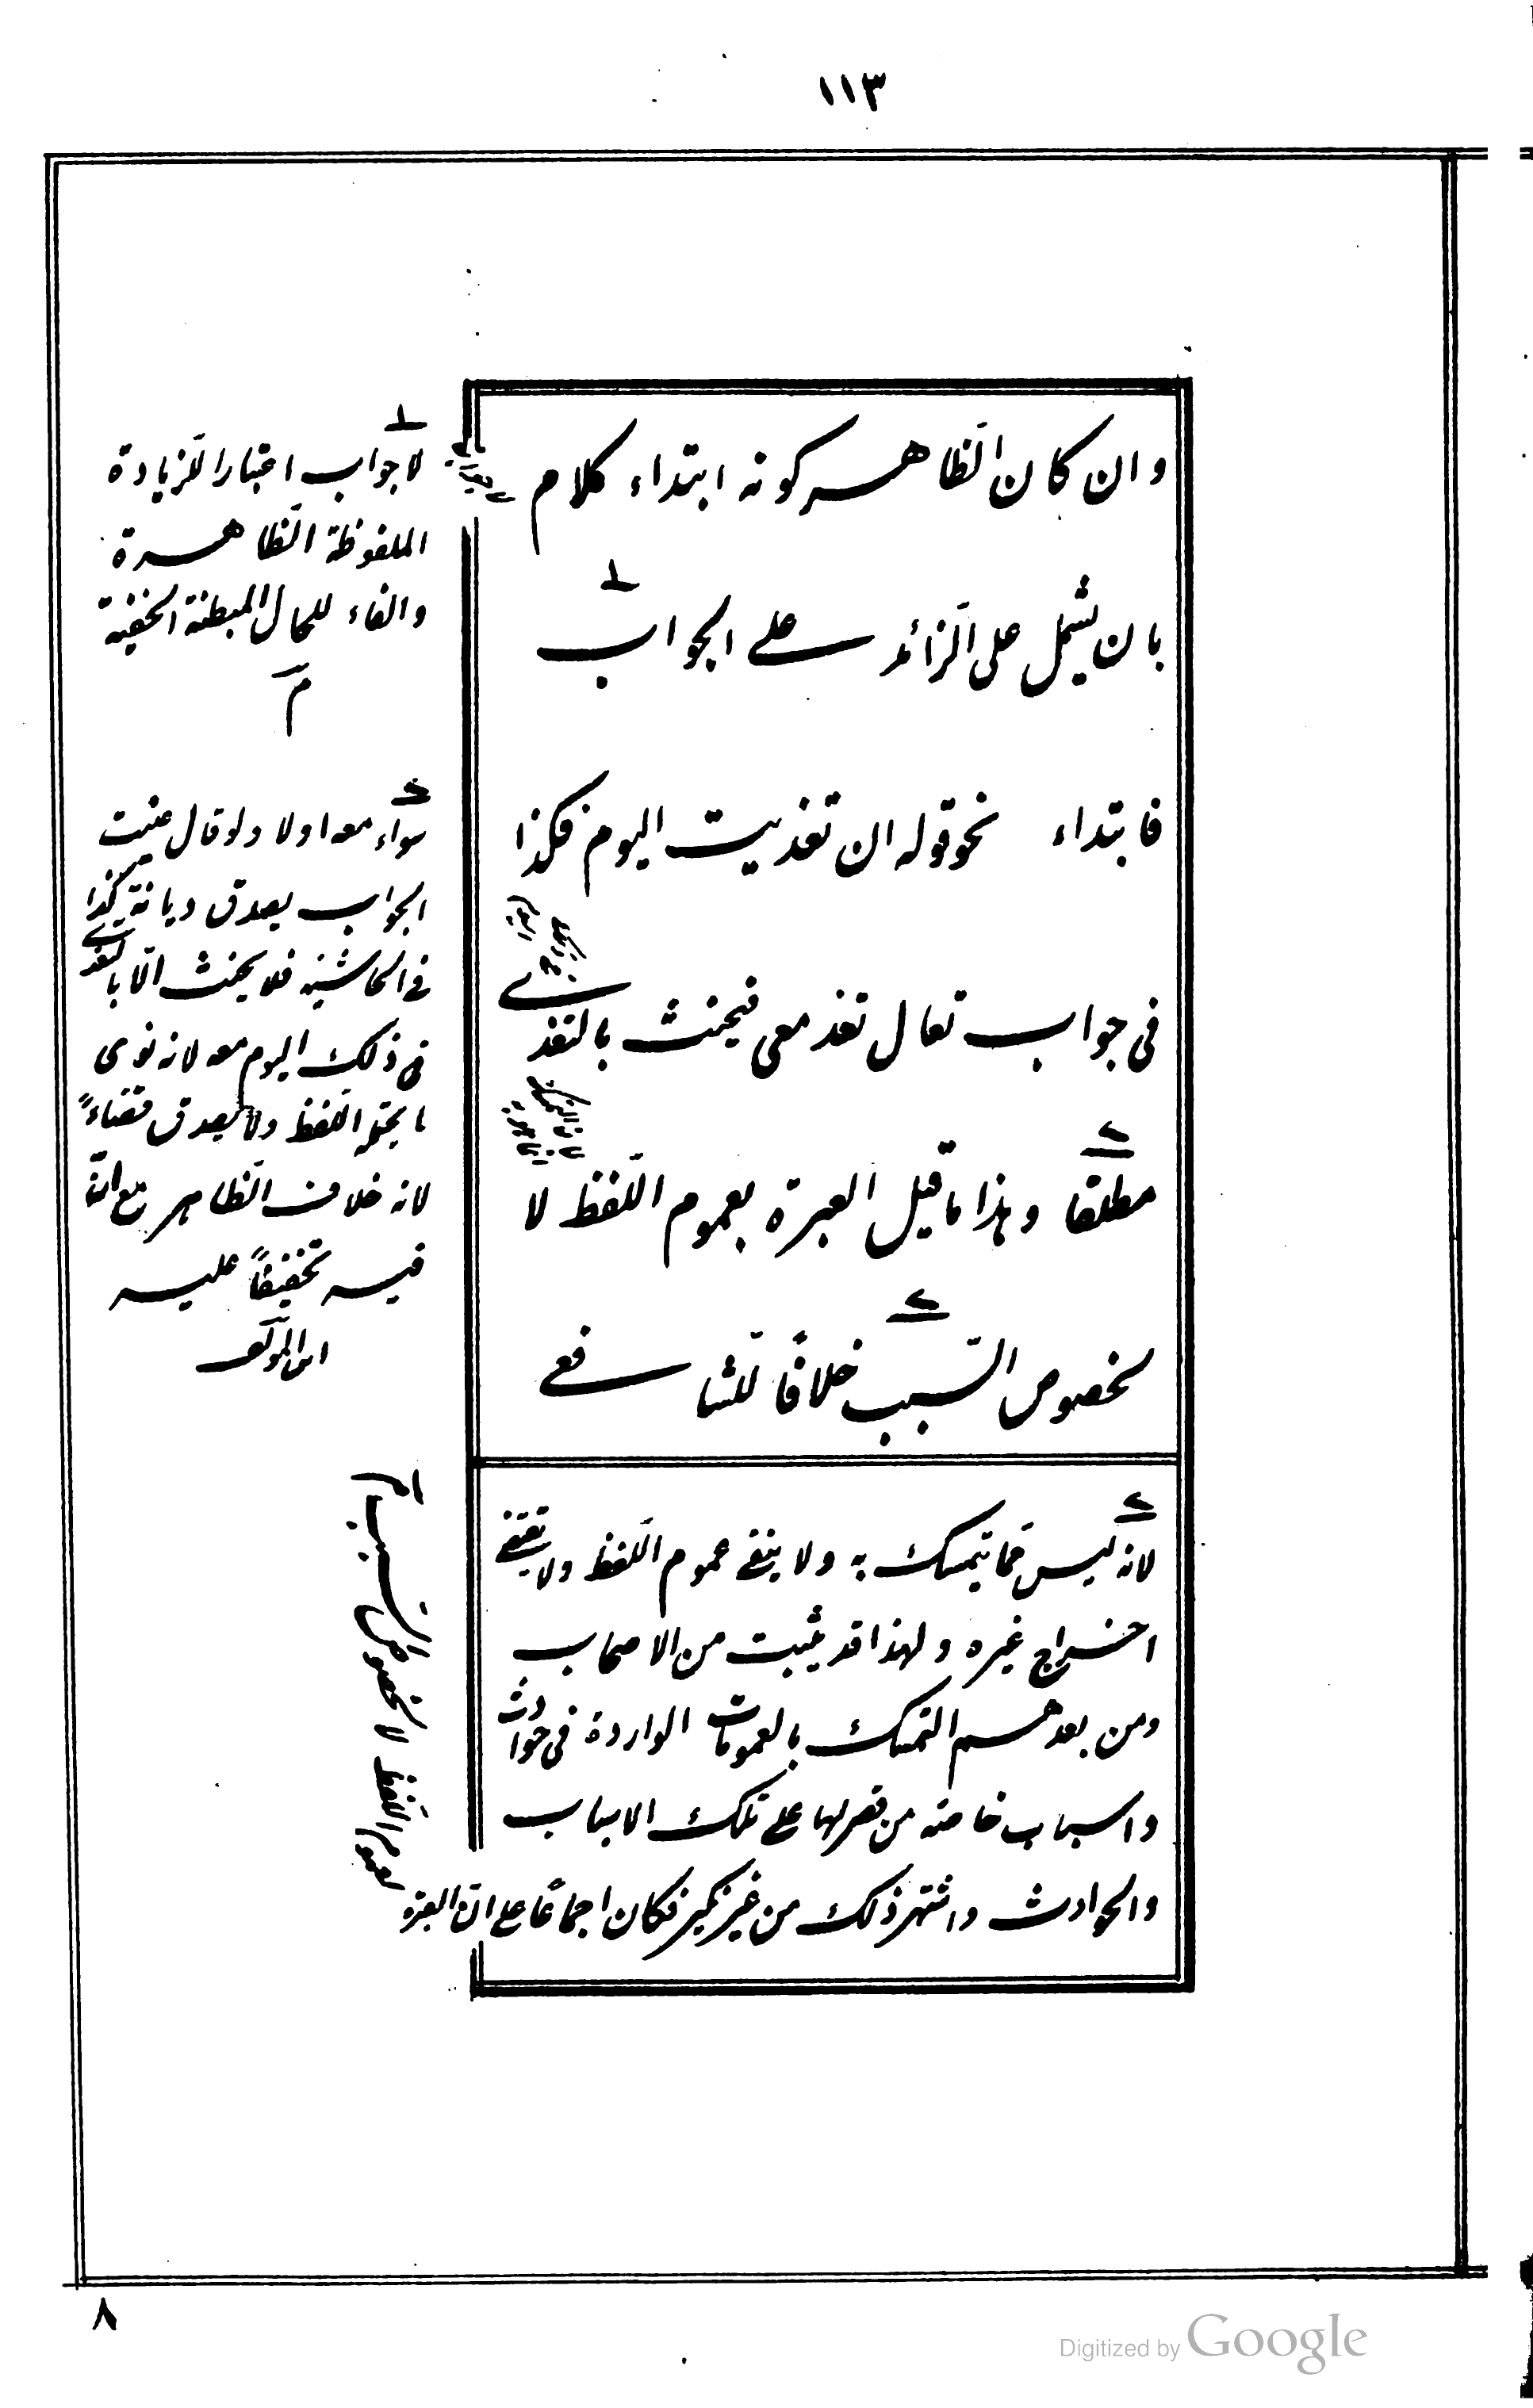 ١١٣
وان كان الظاهر كونه ابتداء كلام
بان يشمل على الزائد على الجواب
فابتداء نحو قوله ان تغذيت اليوم فكذا
فى جواب تعال تغذ معى فيحنث بالتغذى
مطلقا وهذا ما قيل العبرة بعموم اللفظ لا
لخصوص السّبب خلافًا للشافعى
لانه ليس مما يتمسك به ولا ينفى عموم اللفظ ولا يقتضى
اخراج غيره ولهذا قد يثبت من الاصحاب
ومن بعدهم التمسك بالعمومات الواردة فى حوادث
واسباب خاصة من قصر لها على تلك الاسباب
والحوادث واشتهر ذلك من غير نكير فكان اجماعًا على ان العبرة
لعموم اللفظ لا لخصوص السبب م
لا جواب اعتبارا للزيادة
الملفوظة الظاهرة
والغاء للحال المبطنة الخفية
م
سواء معه اولا ولو قال عنيت
الجواب يصدق ديانة كذا
فى الحاشية فلا يحنث الّا بالتغدى
فى ذلك اليوم معه لانه نوى
ما يحتمله اللفظ ولا يصدق قضاءً
لانه خلاف الظاهر مع انّ
فيه تخفيفًا عليه
ابن المؤلف
٨
Digitized by Google